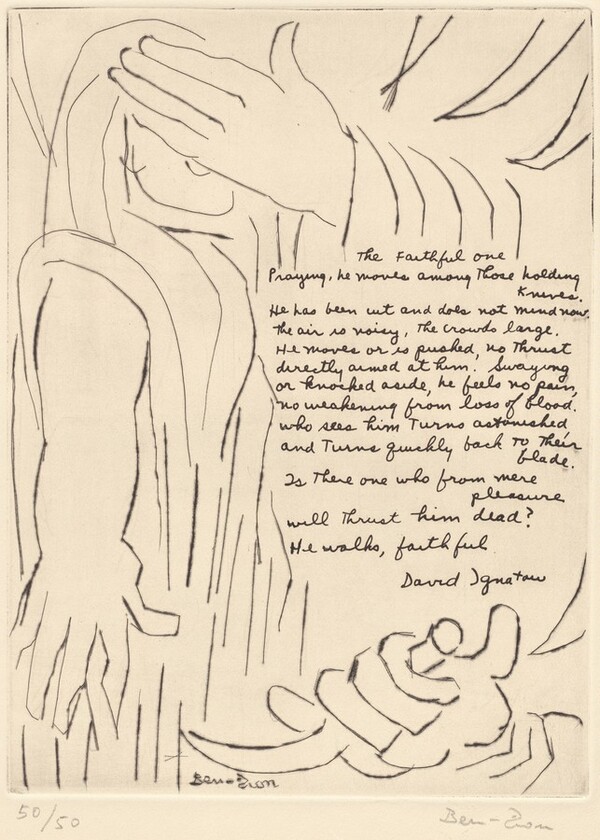 The Faithful one
Praying, he moves among Those holding
Knives.
He has been cut and does not mind now.
The air is noisy, The crowds large.
He moves or is pushed, no Thrust
directly aimed at him. Swaying
or knocked aside, he feels no pain,
no weakening from loss of blood.
Who sees him Turns astonished
and Turns quickly back To Their
blade.
Is There one who from mere
pleasure
will Thrust him dead?
He walks, faithful
David Ignatow
Ben-Zion
50/50
Ben-Zion